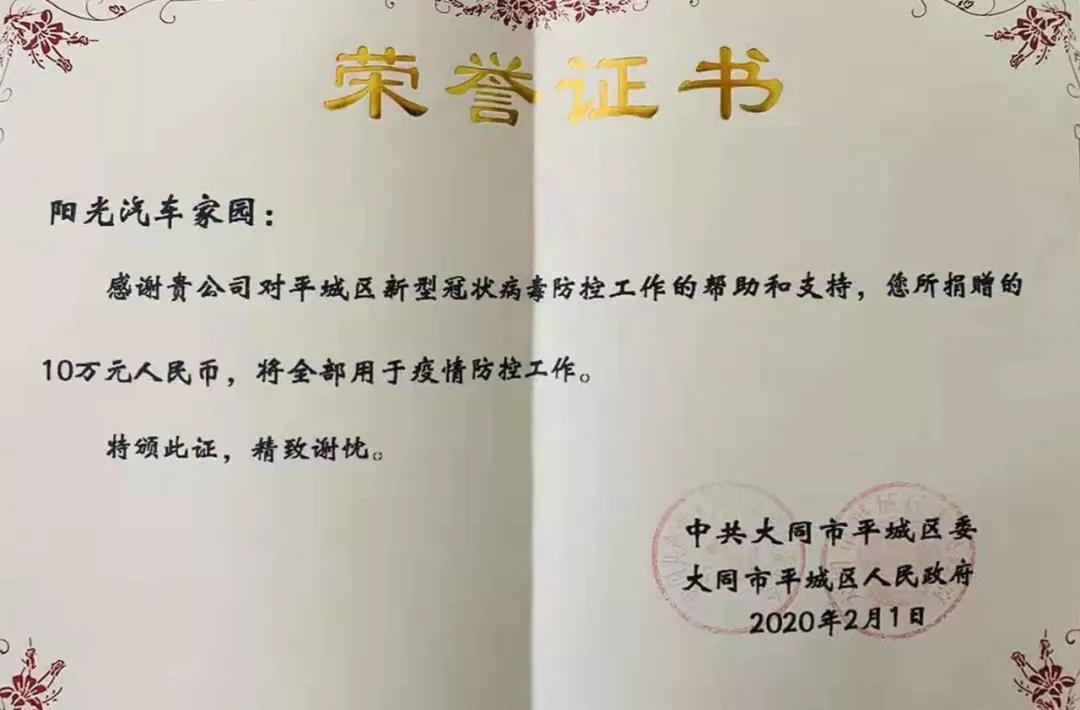 荣誉证书
阳光汽车家园：
感谢贵公司对平城区新型冠状病毒防控工作的帮助和支持，您所捐赠的
10万元人民币，将全部用于疫情防控工作。
特颁此证，精致谢忱。
中共大同市平城区委
大同市平城区人民政府
2020年2月1日